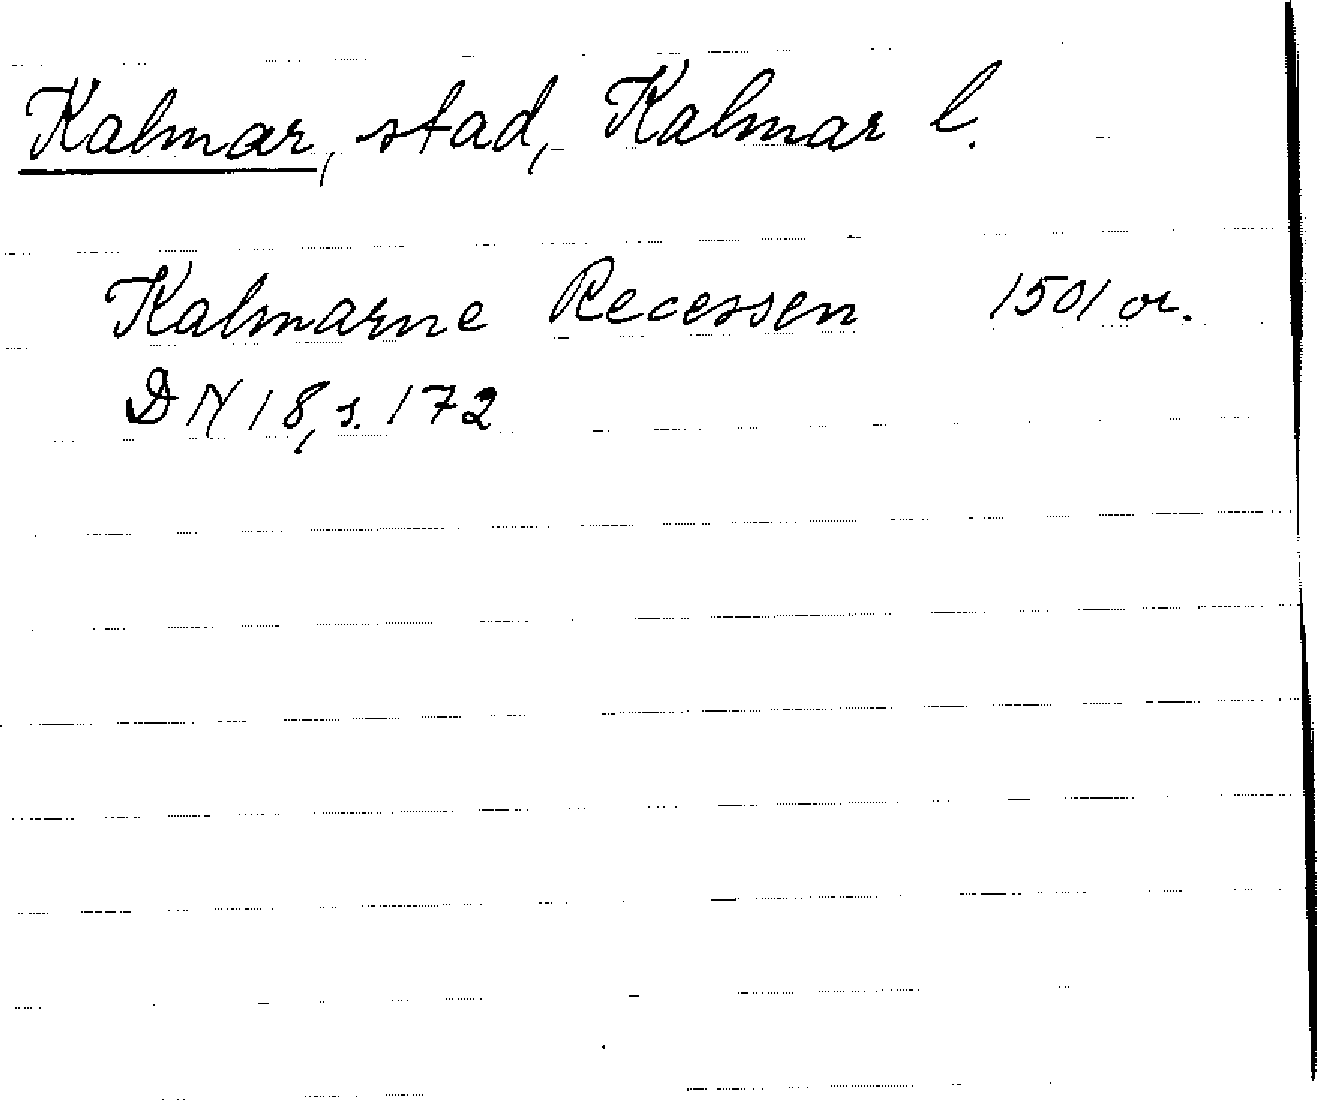 Kalmar, stad, Kalmar l.
Kalmarne Recessen 1501 or.
DN 18, s. 172